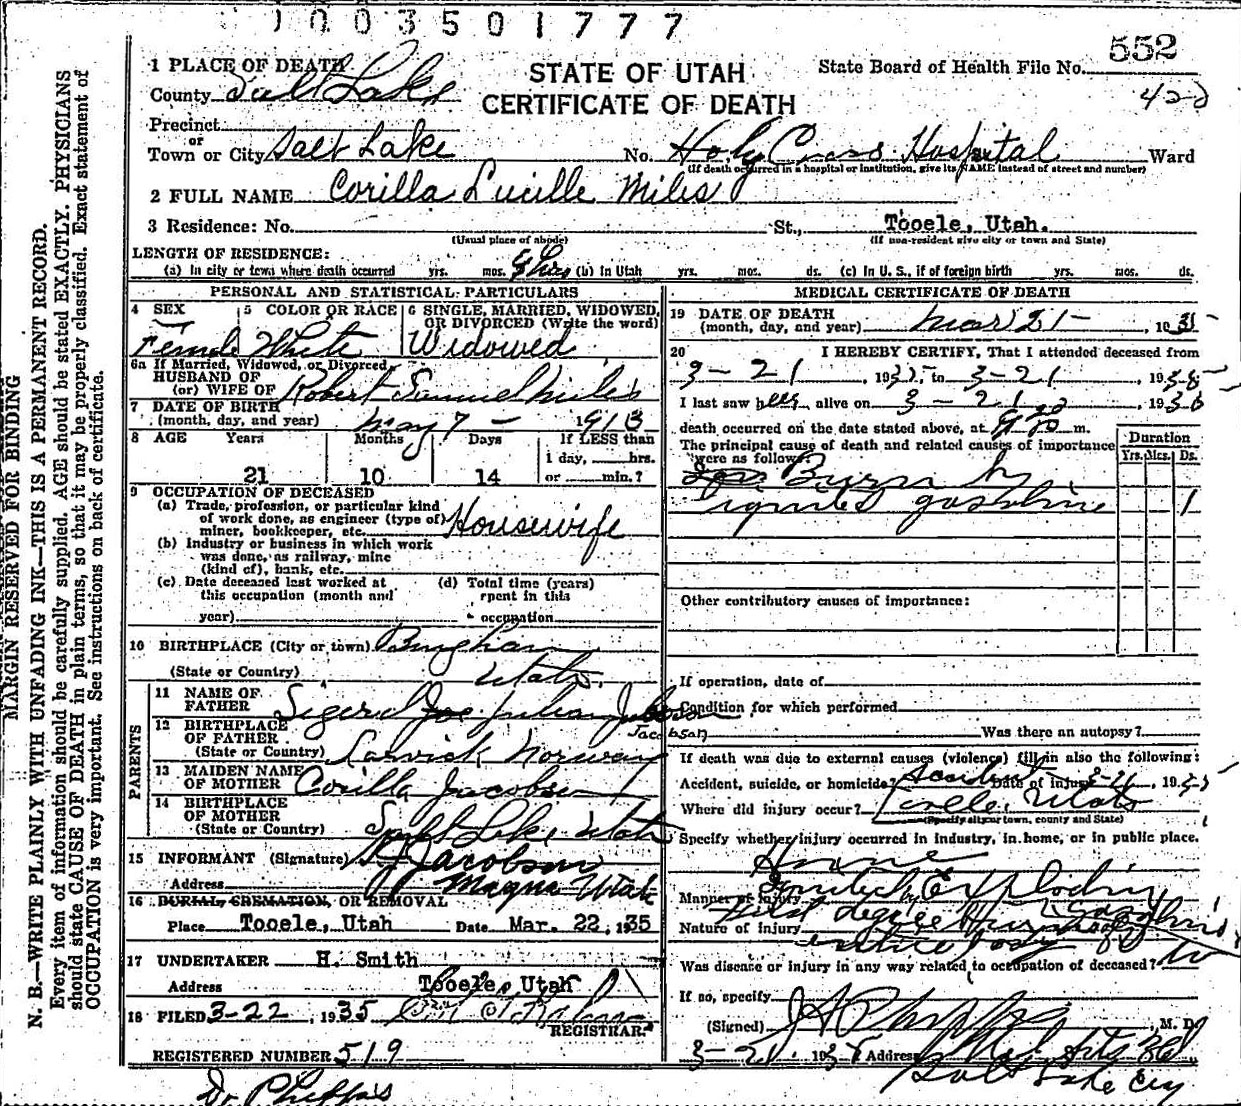 1003501777
552
State Board of Health File No.
STATE OF UTAH
CERTIFICATE OF DEATH
1 PLACE OF DEATH
County Salt Lake
Precinct
or
Town or City Salt Lake No. Holy Cross Hospital Ward
(If death occurred in a hospital or institution, give its NAME instead of street and number)
2 FULL NAME Corilla Lucille Miles
3 Residence: No. St., Tooele, Utah.
(Usual place of abode) (If non-resident give city or town and State)
LENGTH OF RESIDENCE:
(a) In city or town where death occurred yrs. mos. hrs (b) In Utah yrs. mos. ds. (c) In U. S., if of foreign birth yrs. mos. ds.
PERSONAL AND STATISTICAL PARTICULARS
4 SEX 5 COLOR OR RACE 6 SINGLE, MARRIED, WIDOWED, OR DIVORCED (Write the word)
Female White Widowed
6a If Married, Widowed, or Divorced
HUSBAND OF
(or) WIFE OF Robert Samuel Miles
7 DATE OF BIRTH
(month, day, and year) May 7 - 1913
8 AGE Years Months Days If LESS than
1 day, hrs.
21 10 14 or min.?
9 OCCUPATION OF DECEASED
(a) Trade, profession, or particular kind
of work done, as engineer (type of)
miner, bookkeeper, etc. Housewife
(b) Industry or business in which work
was done, as railway, mine
(kind of), bank, etc.
(c) Date deceased last worked at (d) Total time (years)
this occupation (month and spent in this
year) occupation
10 BIRTHPLACE (City or town) Bingham
(State or Country) Utah
PARENTS
11 NAME OF
FATHER Sigerd Joe Julian Jacobson
Jacobson
12 BIRTHPLACE
OF FATHER
(State or Country) Larvick Norway
13 MAIDEN NAME
OF MOTHER Corilla Jacobson
14 BIRTHPLACE
OF MOTHER
(State or Country) Lake, Utah
15 INFORMANT (Signature) Jacobson
Address Magna Utah
16 BURIAL, CREMATION, OR REMOVAL
Place Tooele, Utah Date Mar. 22, 1935
17 UNDERTAKER H. Smith
Address Tooele, Utah
18 FILED 3-22, 1935
REGISTRAR.
REGISTERED NUMBER 519
MEDICAL CERTIFICATE OF DEATH
19 DATE OF DEATH
(month, day, and year) Mar 21 - , 1935
20 I HEREBY CERTIFY, That I attended deceased from
3-21, 1935, to 3-21, 1935
I last saw her alive on 3-21, 1935
death occurred on the date stated above, at m.
The principal cause of death and related causes of importance
were as follows: Duration
Yrs. Mos. Ds.
Burn by
ignited gasoline 1
Other contributory causes of importance:
If operation, date of
Condition for which performed
Was there an autopsy?
If death was due to external causes (violence) fill in also the following:
Accident, suicide, or homicide? Accident Date of injury 3-21, 1935
Where did injury occur? Tooele, Utah
(Specify city or town, county and State)
Specify whether injury occurred in industry, in home, or in public place.
Home
Manner of injury Ignited by Exploding
Nature of injury First degree
entire body
Was disease or injury in any way related to occupation of deceased? No
If so, specify
(Signed) M. D.
3-21, 1935 Address Med Arts Bld
Salt Lake City
MARGIN RESERVED FOR BINDING
N. B.—WRITE PLAINLY WITH UNFADING INK—THIS IS A PERMANENT RECORD.
Every item of information should be carefully supplied. AGE should be stated EXACTLY. PHYSICIANS
should state CAUSE OF DEATH in plain terms, so that it may be properly classified. Exact statement of
OCCUPATION is very important. See instructions on back of certificate.